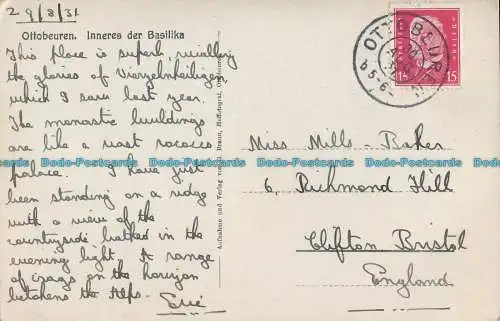 29/8/31
Ottobeuren. Inneres der Basilika
This place is superb recalling
the glories of Vierzehnheiligen,
which I saw last year.
The monastic buildings
are like a vast rococo
palace. I have just
been standing on a ridge
with a view of the
countryside bathed in the
evening light. A range
of crags on the horizon
betokens the Alps.
Eric
Aufnahme und Verlag von
Braun, Hoffotograf,
OTTOBEUR
15 15
Miss Mills-Baker
6, Richmond Hill
Clifton Bristol
England
Dodo-Postcards Dodo-Postcards Dodo-Postcards Dodo-Postcards Dodo-Postcards